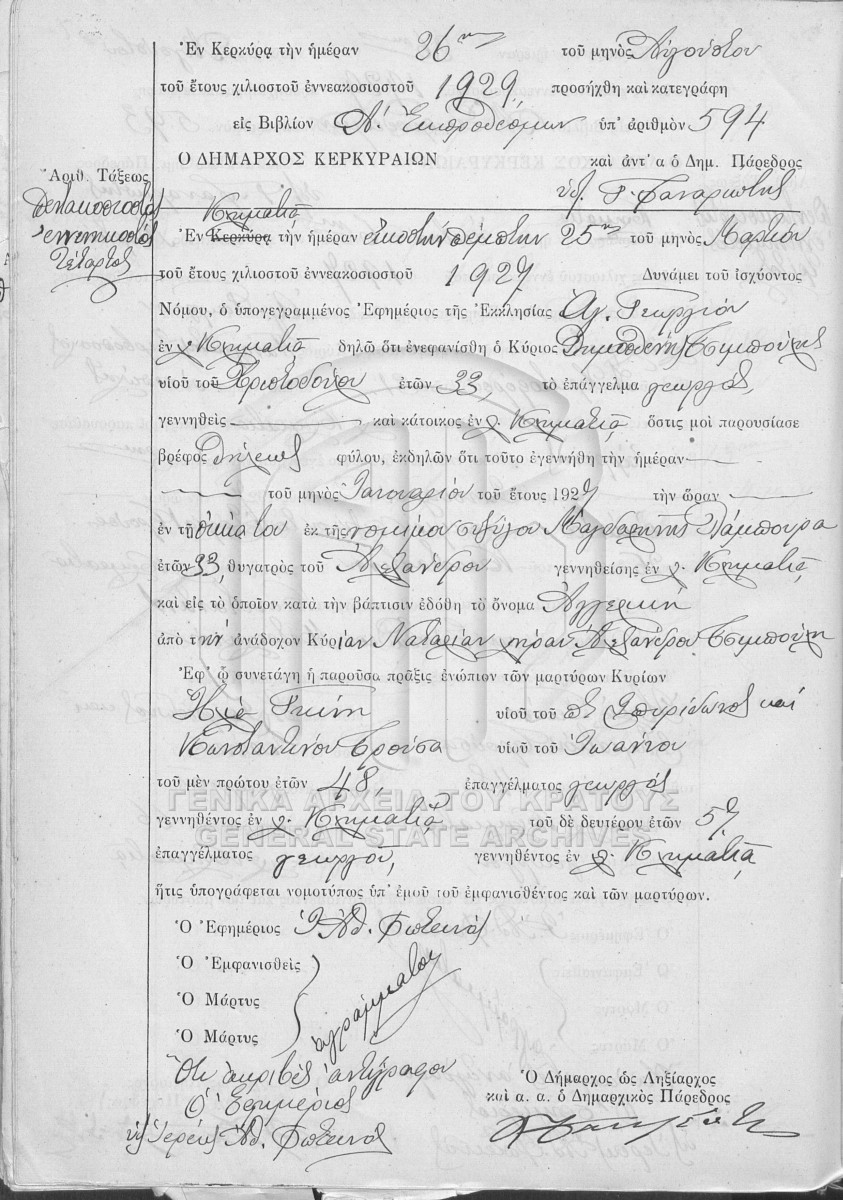 Ἐν Κερκύρᾳ τὴν ἡμέραν 26ην τοῦ μηνὸς Αὐγούστου
τοῦ ἔτους χιλιοστοῦ ἐννεακοσιοστοῦ 1929, προσήχθη καὶ κατεγράφη
εἰς Βιβλίον Α΄. Ἐκπροθέσμων ὑπ᾽ ἀριθμὸν 594
Ο ΔΗΜΑΡΧΟΣ ΚΕΡΚΥΡΑΙΩΝ καὶ ἀντ᾽ α ὁ Δημ. Πάρεδρος
Ἀριθ. Τάξεως
πεντακοσιοστός
ἐννενηκοστός
τέταρτος
Κληματιᾷ
Ἐν Κερκύρᾳ τὴν ἡμέραν εἰκοστὴν πέμπτην 25ην τοῦ μηνὸς Μαρτίου
τοῦ ἔτους χιλιοστοῦ ἐννεακοσιοστοῦ 1927 Δυνάμει τοῦ ἰσχύοντος
Νόμου, ὁ ὑπογεγραμμένος Ἐφημέριος τῆς Ἐκκλησίας Ἁγ. Γεωργίου
ἐν χ. Κληματιᾷ δηλῶ ὅτι ἐνεφανίσθη ὁ Κύριος Δημοσθένης Τσιμπούλης
υἱοῦ τοῦ Χριστοδούλου ἐτῶν 33, τὸ ἐπάγγελμα γεωργός,
γεννηθεὶς καὶ κάτοικος ἐν χ. Κληματιᾷ ὅστις μοὶ παρουσίασε
βρέφος θήλεος φύλου, ἐκδηλῶν ὅτι τοῦτο ἐγεννήθη τὴν ἡμέραν
τοῦ μηνὸς Ἰανουαρίου τοῦ ἔτους 1927 τὴν ὥραν
ἐν τῇ οἰκίᾳ του ἐκ τῆς νομίμου συζύγου Μαγδαληνῆς Λάμπουρα
ἐτῶν 33, θυγατρὸς τοῦ Ἀλεξάνδρου γεννηθείσης ἐν χ. Κληματιᾷ
καὶ εἰς τὸ ὁποῖον κατὰ τὴν βάπτισιν ἐδόθη τὸ ὄνομα Ἀγγελική
ἀπὸ τὴν ἀνάδοχον Κυρίαν Ναταλίαν χήραν Ἀλεξάνδρου Τσιμπούλη
Ἐφ᾽ ᾧ συνετάγη ἡ παροῦσα πρᾶξις ἐνώπιον τῶν μαρτύρων Κυρίων
Ἠλία Γκίνη υἱοῦ τοῦ ποτὲ Σπυρίδωνος καὶ
Κωνσταντίνου υἱοῦ τοῦ Ἰωάννου
τοῦ μὲν πρώτου ἐτῶν 48, ἐπαγγέλματος γεωργός
ΓΕΝΙΚΑ ΑΡΧΕΙΑ ΤΟΥ ΚΡΑΤΟΥΣ
γεννηθέντος ἐν χ. Κληματιᾷ τοῦ δὲ δευτέρου ἐτῶν 57
GENERAL STATE ARCHIVES
ἐπαγγέλματος γεωργοῦ, γεννηθέντος ἐν χ. Κληματιᾷ
ἥτις ὑπογράφεται νομοτύπως ὑπ᾽ ἐμοῦ τοῦ ἐμφανισθέντος καὶ τῶν μαρτύρων.
Ὁ Ἐφημέριος Ἰ. Ἀθ. Φωτεινός
Ὁ Ἐμφανισθεὶς
Ὁ Μάρτυς ἀγράμματοι
Ὁ Μάρτυς
Ὅτι ἀκριβὲς ἀντίγραφον
Ὁ Ἐφημέριος
Ἱερεὺς Ἀθ. Φωτεινός
Ὁ Δήμαρχος ὡς Ληξίαρχος
καὶ α. α. ὁ Δημαρχικὸς Πάρεδρος